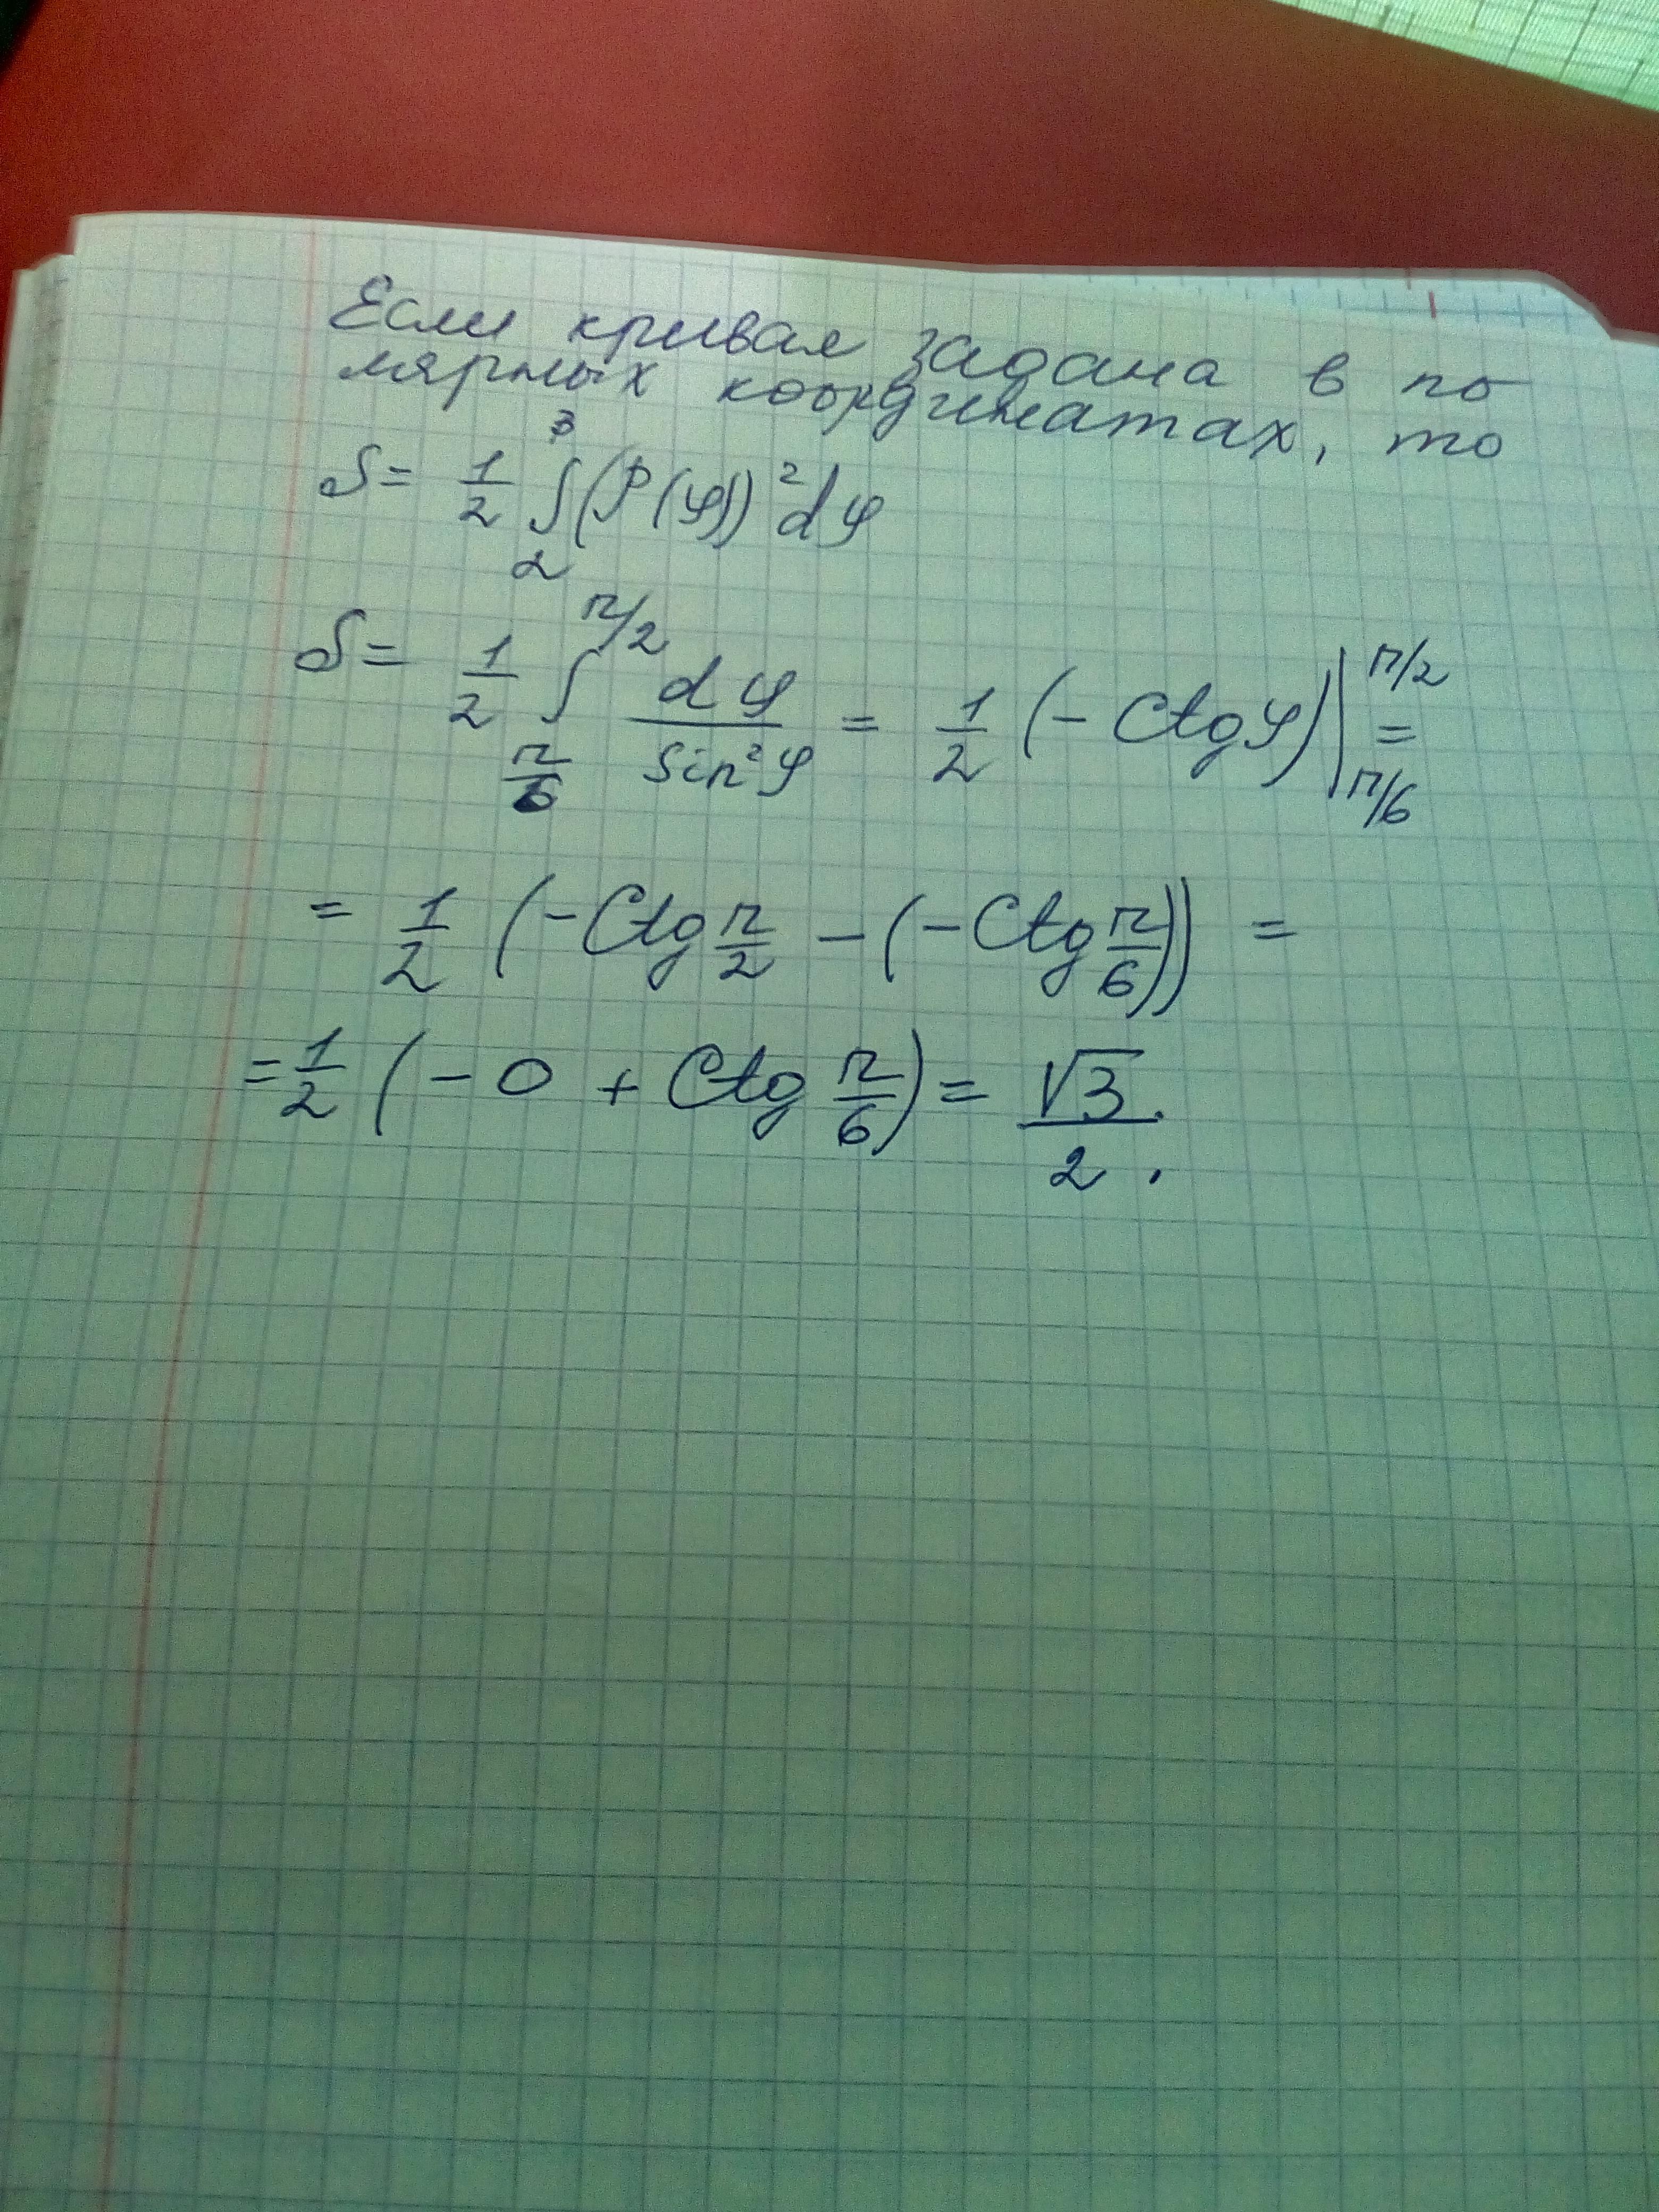 Если кривая задана в по
лярных координатах, то
S = 1/2 ∫_α^β (ρ(φ))² dφ
S = 1/2 ∫_{π/6}^{π/2} dφ / sin²φ = 1/2 (- Ctg φ) |_{π/6}^{π/2} =
= 1/2 (- Ctg π/2 - (- Ctg π/6)) =
= 1/2 (- 0 + Ctg π/6) = √3/2.